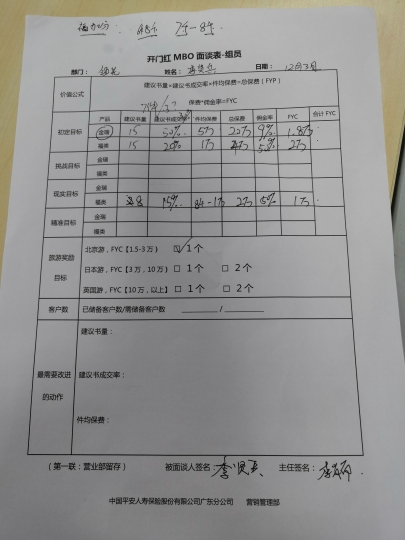 开门红 MBO 面谈表-组员
部门： 姓名： 日期：12月3日
价值公式 建议书量×建议书成交率×件均保费=总保费（FYP）
保费*佣金率=FYC
产品 建议书量 建议书成交率 件均保费 总保费 佣金率 FYC 合计 FYC
初定目标 金瑞 15 30% 5万 22万 9% 1.8万
福类 15 20% 1万 2万
挑战目标 金瑞
福类
现实目标 金瑞
福类 8 15% 2万 50% 1万
精准目标 金瑞
福类
旅游奖励目标 北京游，FYC【1.5-3 万】 ☑ 1 个
日本游，FYC【3 万，10 万】 □ 1 个 □ 2 个
英国游，FYC【10 万，以上】 □ 1 个 □ 2 个
客户数 已储备客户数/需储备客户数 ______ / ______
最需要改进的动作 建议书量：
建议书成交率：
件均保费：
（第一联：营业部留存） 被面谈人签名： 主任签名：
中国平安人寿保险股份有限公司广东分公司 营销管理部